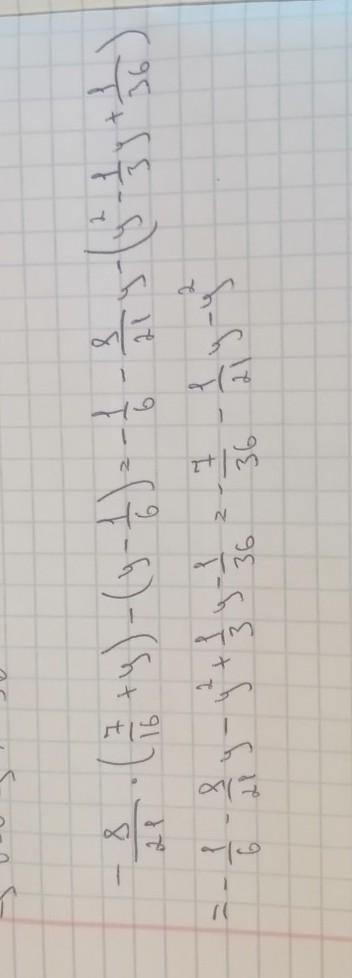 -8/21 · (7/16 + y) - (y - 1/6) = -1/6 - 8/21 y - (y² - 1/3 y + 1/36)
= -1/6 - 8/21 y - y² + 1/3 y - 1/36 = -7/36 - 1/21 y - y²